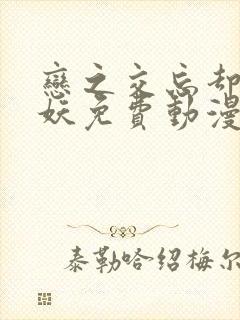 戀之交忘却
妖免費動漫
泰勒哈绍梅尔